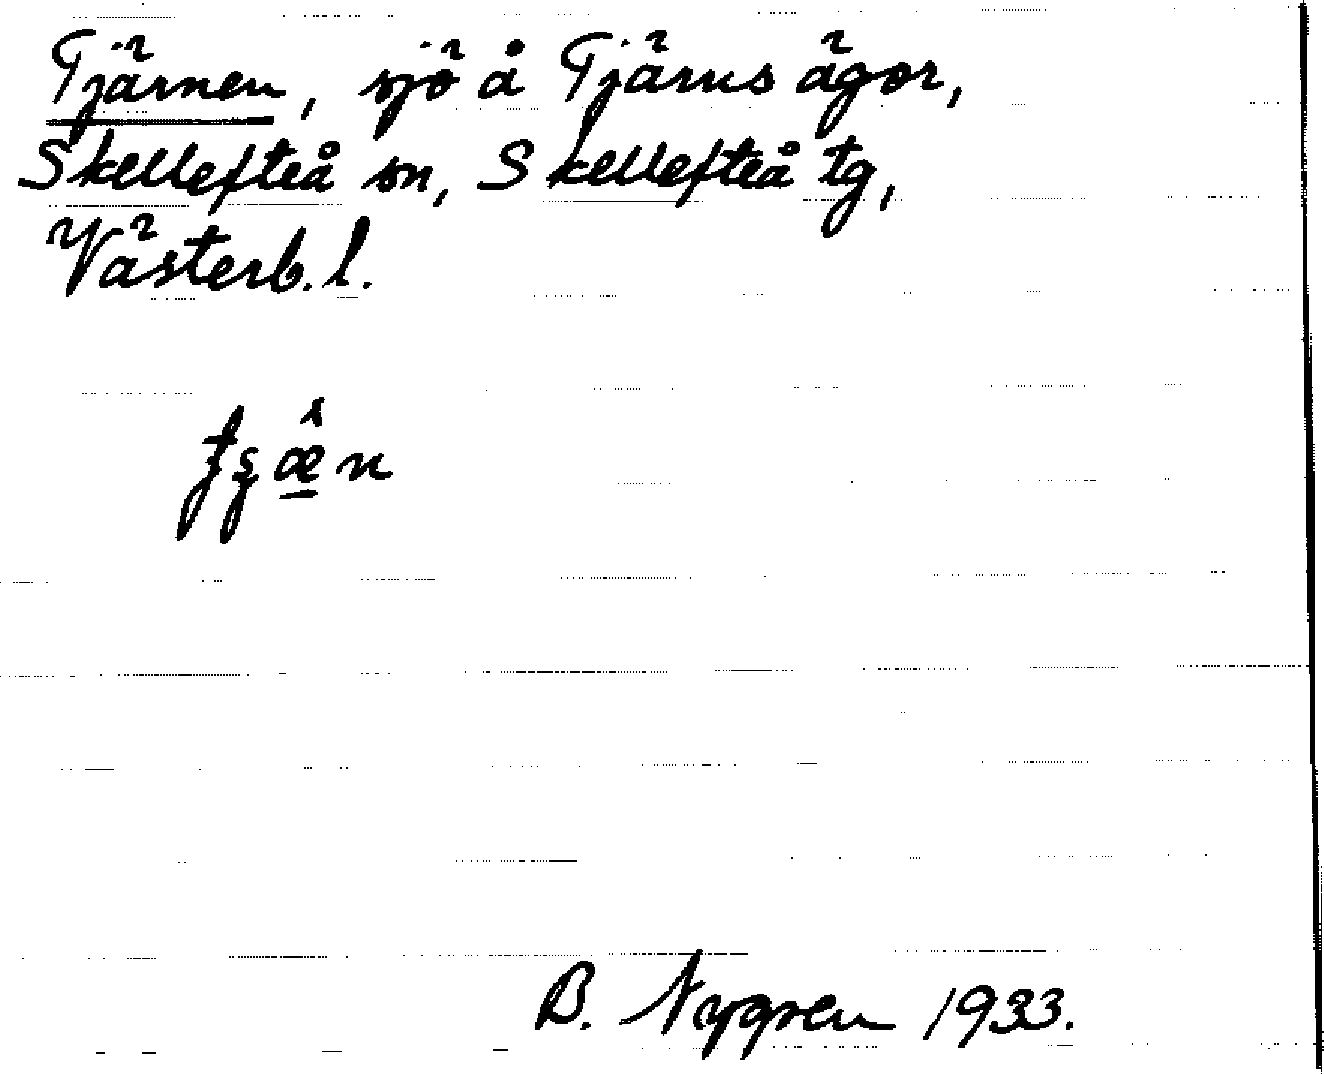 Tjärnen, sjö å Tjärns ägor,
Skellefteå sn, Skellefteå tg,
Västerb. l.
B. Nygren 1933.